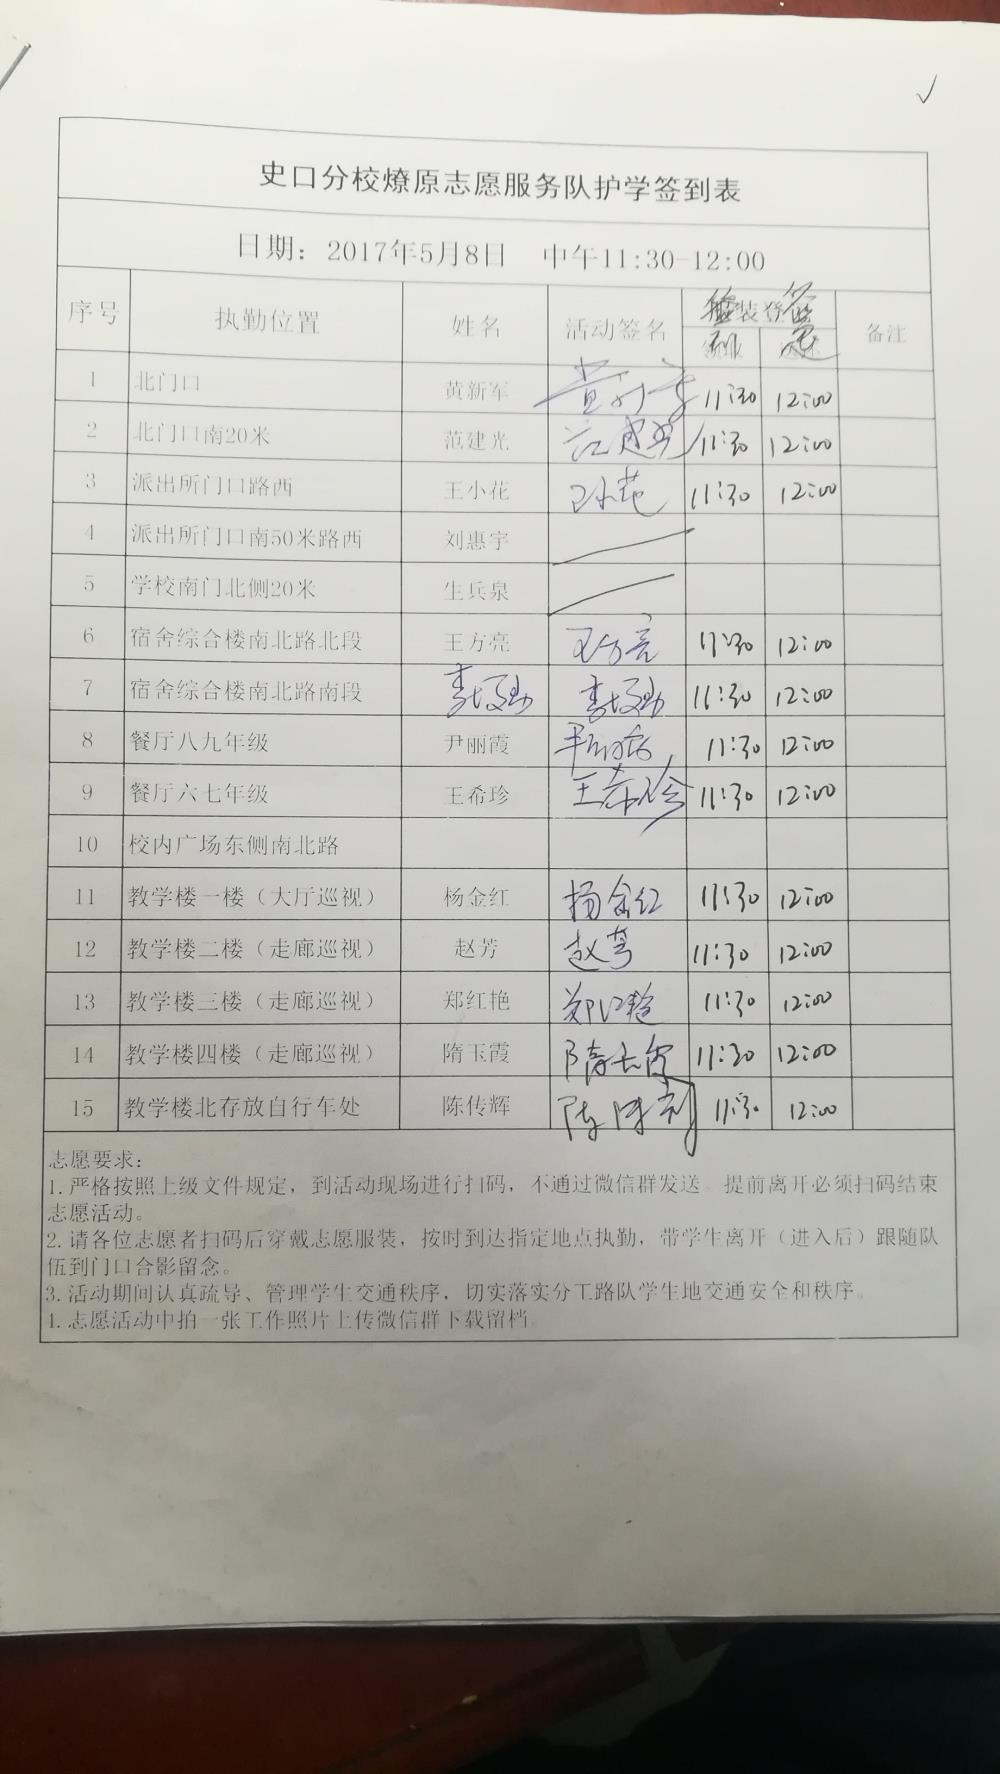 史口分校燎原志愿服务队护学签到表
日期：2017年5月8日 中午11:30-12:00
序号 执勤位置 姓名 活动签名 签到 签退 备注
1 北门口 黄新军 黄新军 11:30 12:00
2 北门口南20米 范建光 范建光 11:30 12:00
3 派出所门口路西 王小花 王小花 11:30 12:00
4 派出所门口南50米路西 刘惠宇
5 学校南门北侧20米 生兵泉
6 宿舍综合楼南北路北段 王方亮 王方亮 11:30 12:00
7 宿舍综合楼南北路南段 11:30 12:00
8 餐厅八九年级 尹丽霞 11:30 12:00
9 餐厅六七年级 王希珍 王希珍 11:30 12:00
10 校内广场东侧南北路
11 教学楼一楼（大厅巡视） 杨金红 杨金红 11:30 12:00
12 教学楼二楼（走廊巡视） 赵芳 赵芳 11:30 12:00
13 教学楼三楼（走廊巡视） 郑红艳 郑红艳 11:30 12:00
14 教学楼四楼（走廊巡视） 隋玉霞 隋玉霞 11:30 12:00
15 教学楼北存放自行车处 陈传辉 11:30 12:00
志愿要求：
1.严格按照上级文件规定，到活动现场进行扫码，不通过微信群发送。提前离开必须扫码结束
志愿活动。
2.请各位志愿者扫码后穿戴志愿服装，按时到达指定地点执勤，带学生离开（进入后）跟随队
伍到门口合影留念。
3.活动期间认真疏导、管理学生交通秩序，切实落实分工路队学生地交通安全和秩序。
4.志愿活动中拍一张工作照片上传微信群下载留档。